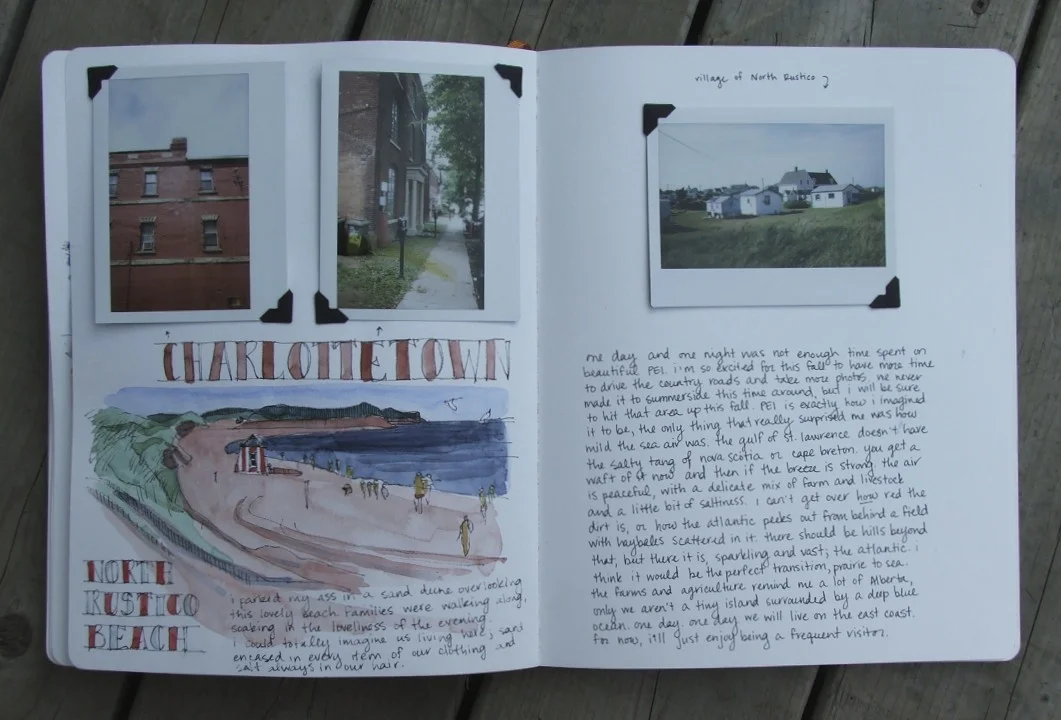 CHARLOTTETOWN
NORTH
RUSTICO
BEACH
i parked my ass in a sand dune overlooking
this lovely beach. Families were walking along,
soaking in the loveliness of the evening.
i could totally imagine us living here; sand
encased in every item of our clothing and
salt always in our hair.
village of North Rustico
one day and one night was not enough time spent on
beautiful PEI. i'm so excited for this fall to have more time
to drive the country roads and take more photos. we never
made it to summerside this time around, but i will be sure
to hit that area up this fall. PEI is exactly how i imagined
it to be, the only thing that really surprised me was how
mild the sea air was. the gulf of st. lawrence doesn't have
the salty tang of nova scotia or cape breton. you get a
waft of it now and then if the breeze is strong. the air
is peaceful, with a delicate mix of farm and livestock
and a little bit of saltiness. i can't get over how red the
dirt is, or how the atlantic peeks out from behind a field
with haybales scattered in it. there should be hills beyond
that, but there it is, sparkling and vast; the atlantic. i
think it would be the perfect transition, prairie to sea.
the farms and agriculture remind me a lot of Alberta,
only we aren't a tiny island surrounded by a deep blue
ocean. one day. one day we will live on the east coast.
for now, i'll just enjoy being a frequent visitor.